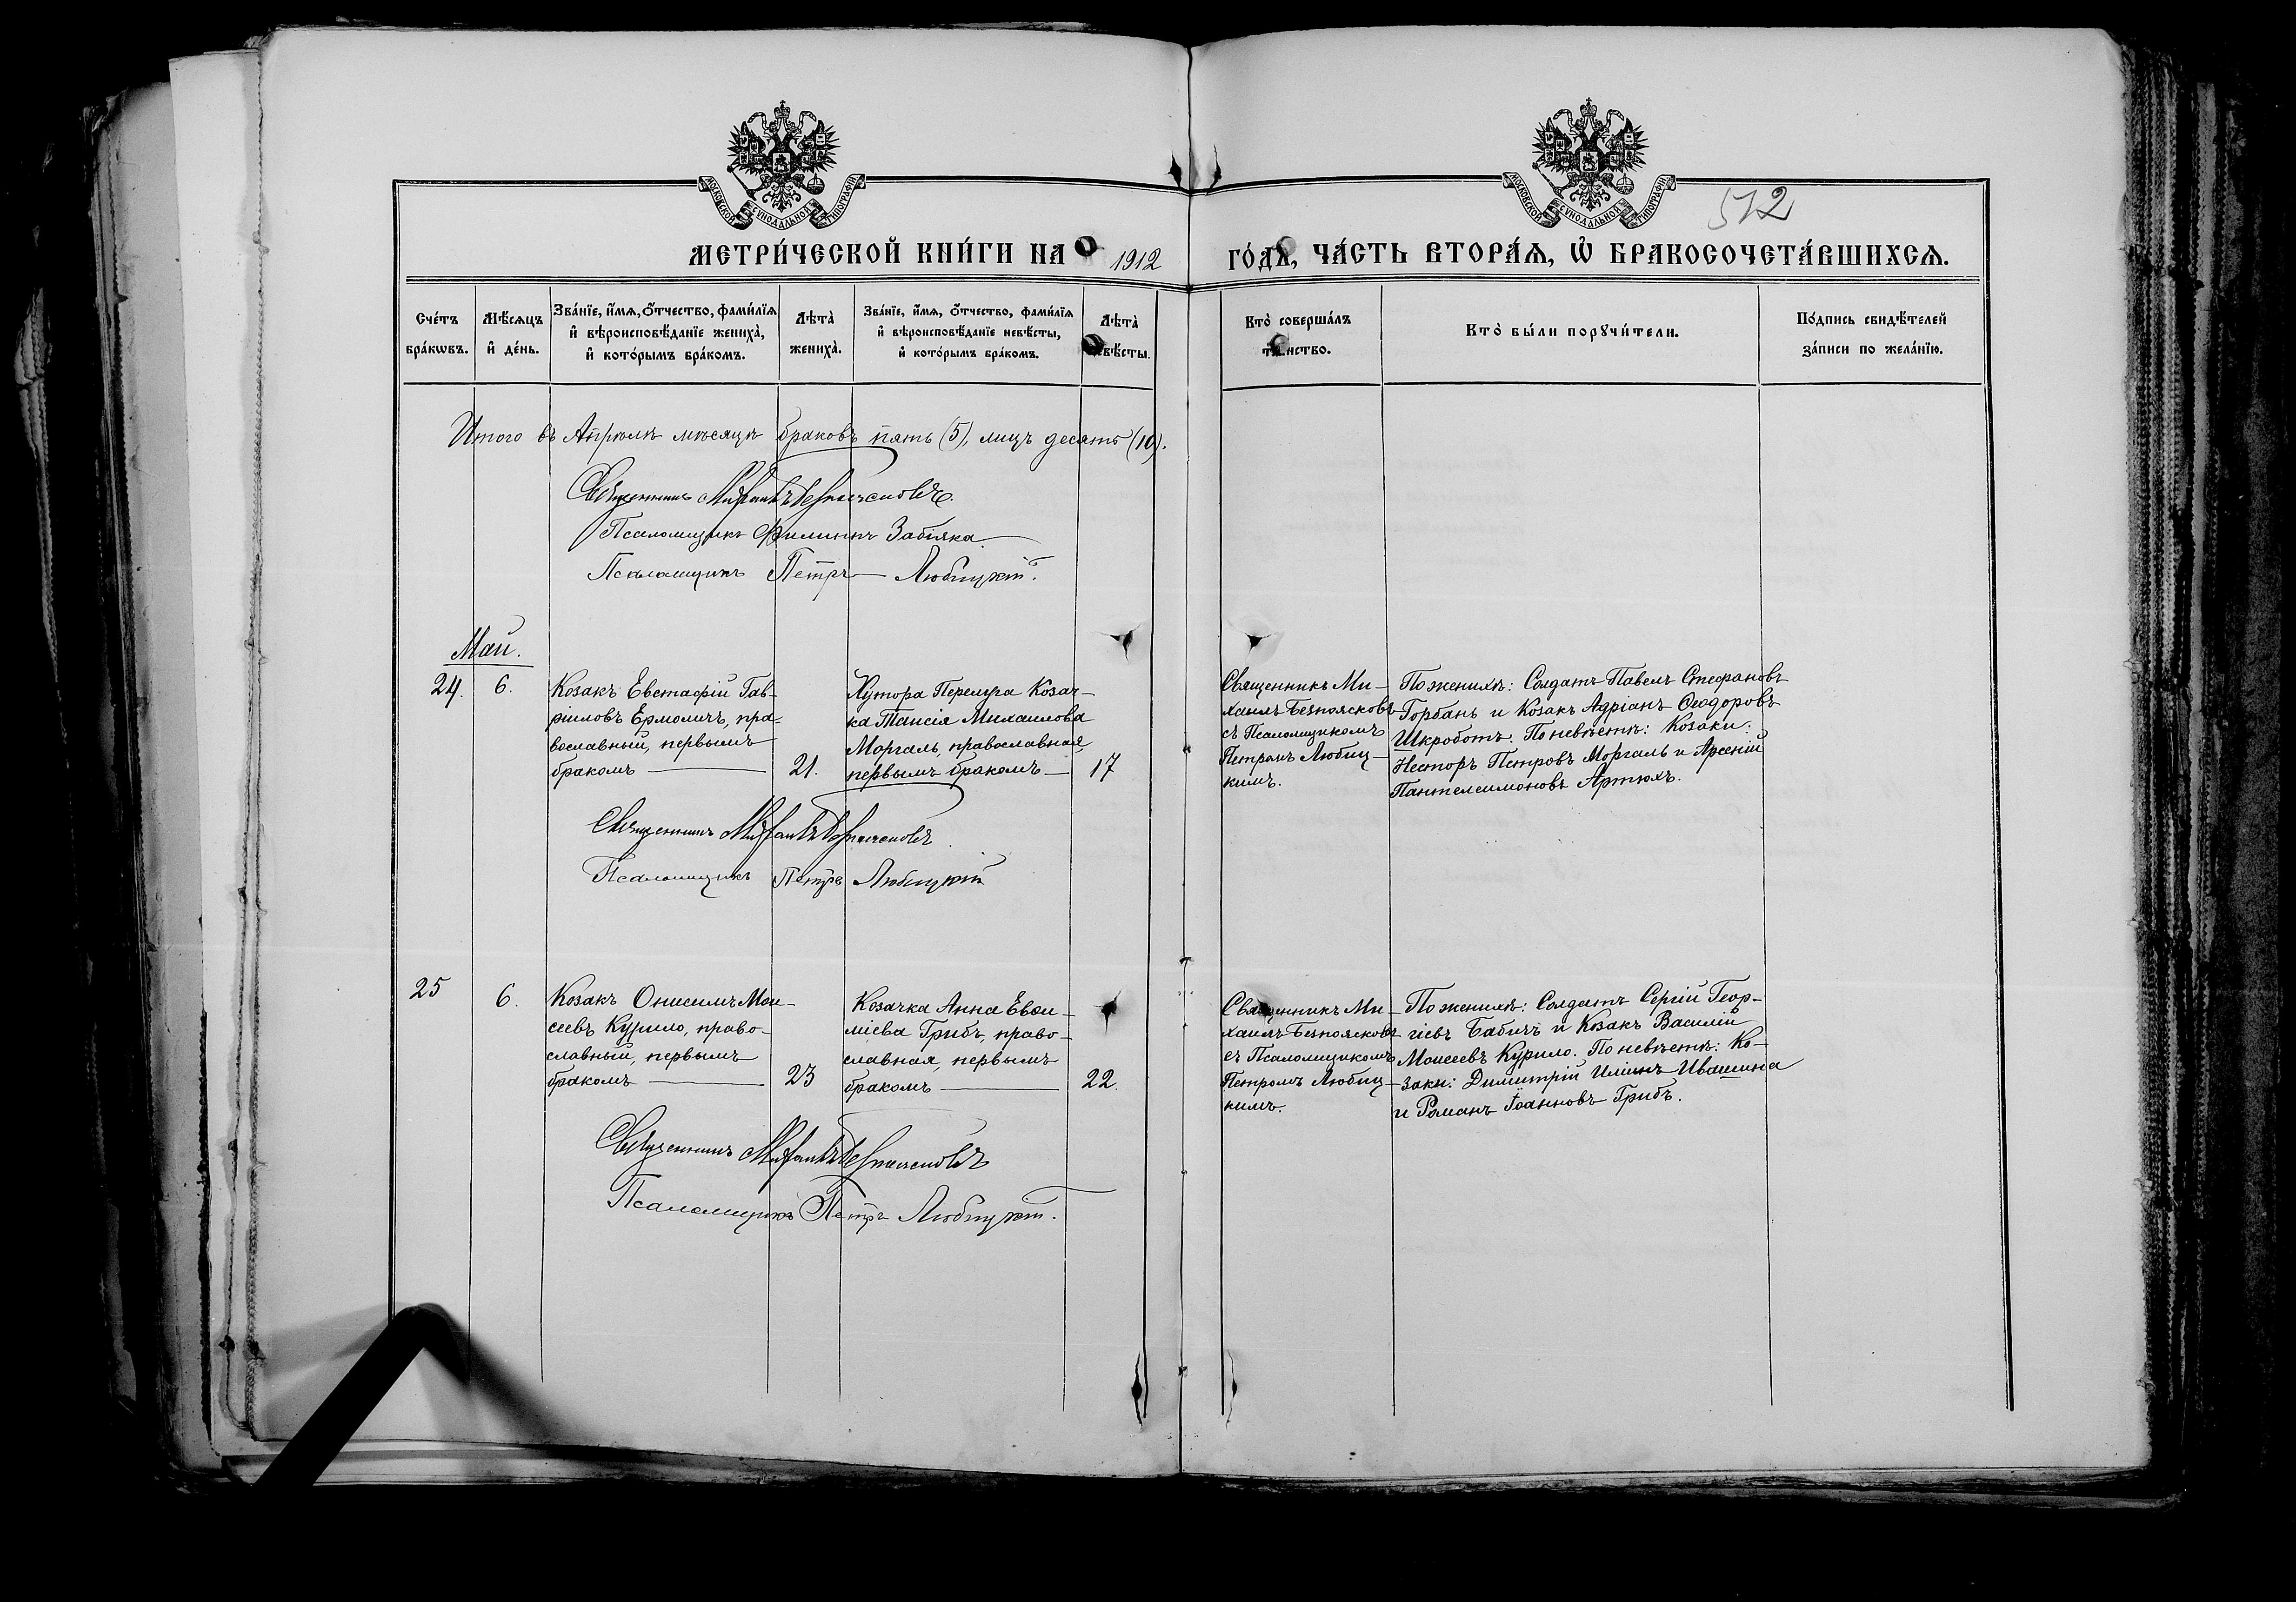 МОСКОВСКОЙ СУНОДАЛЬНОЙ ТИПОГРАФІИ
МОСКОВСКОЙ СУНОДАЛЬНОЙ ТИПОГРАФІИ
512
МЕТРИ́ЧЕСКОЙ КНИ́ГИ НА 1912 ГО́ДЪ, ЧА́СТЬ ВТОРА́Ѧ, Ѿ БРАКОСОЧЕТА́ВШИХСѦ.
Сче́тъ
бра́кѡвъ.
Мѣ́сяцъ
и҆ де́нь.
Зва́нїе, и҆́мѧ, о҆́тчество, фами́лїѧ
и҆ вѣроисповѣ́данїе жениха̀,
и҆ кото́рымъ бра́комъ.
Лѣта̀
жениха̀.
Зва́нїе, и҆́мѧ, о҆́тчество, фами́лїѧ
и҆ вѣроисповѣ́данїе невѣ́сты,
и҆ кото́рымъ бра́комъ.
Лѣта̀
невѣ́сты.
Кто̀ соверша́лъ
таинство.
Кто̀ бы́ли порꙋчи́тели.
По́дпись свидѣ́телей
за́писи по жела́нїю.
Итого въ Апрѣлѣ мѣсяцѣ браковъ пять (5), лицъ десять (10).
Священникъ Михаилъ Безпоясковъ.
Псаломщикъ Филиппъ Забіяка.
Псаломщикъ Петръ Любицкій.
Май.
24. 6.
Козакъ Евстафій Гав-
ріиловъ Ермоличъ, пра-
вославный, первымъ
бракомъ 21.
Хутора Перелура Козач-
ка Таисія Михаилова
Моргаль, православная,
первымъ бракомъ 17
Священникъ Ми-
хаилъ Безпоясковъ
съ Псаломщикомъ
Петромъ Любиц-
кимъ.
По женихѣ: Солдатъ Павелъ Стефановъ
Горбань и Козакъ Адріанъ Ѳеодоровъ
Шкроботъ. По невѣстѣ: Козаки:
Несторъ Петровъ Моргаль и Арсеній
Пантелеимоновъ Артюхъ.
Священникъ Михаилъ Безпоясковъ.
Псаломщикъ Петръ Любицкій
25 6.
Козакъ Онисимъ Мои-
сеевъ Курило, право-
славный, первымъ
бракомъ 23
Козачка Анна Евѳи-
міева Грибъ, право-
славная, первымъ
бракомъ 22.
Священникъ Ми-
хаилъ Безпоясковъ
съ Псаломщикомъ
Петромъ Любиц-
кимъ.
По женихѣ: Солдатъ Сергій Геор-
гіевъ Бабичъ и Козакъ Василій
Моисеевъ Курило. По невѣстѣ: Ко-
заки: Димитрій Иліинъ Ивашина
и Романъ Іоанновъ Грибъ.
Священникъ Михаилъ Безпоясковъ
Псаломщикъ Петръ Любицкій.